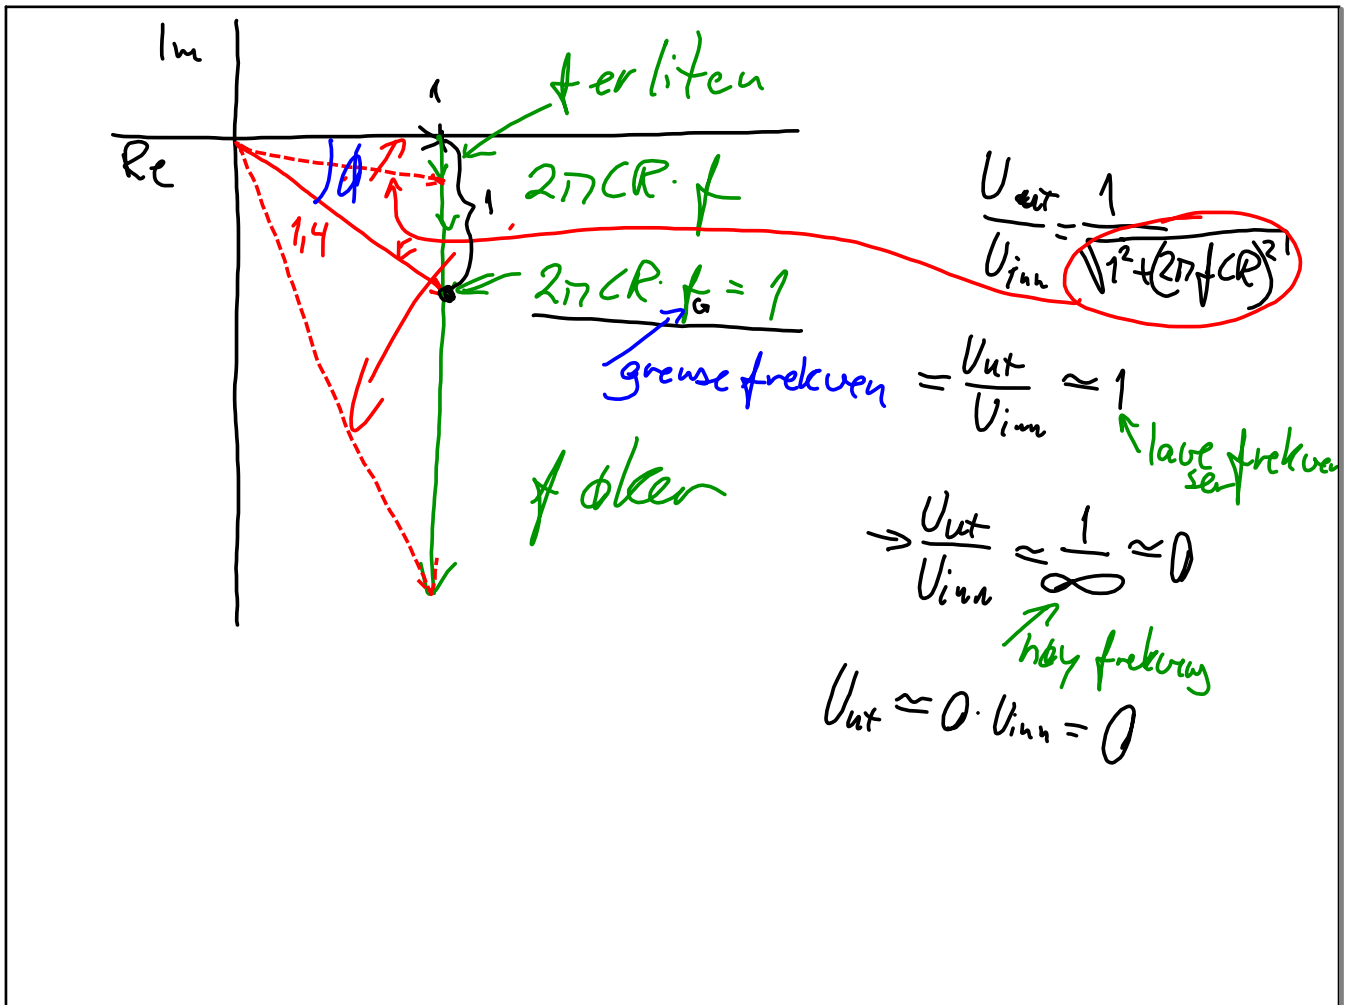 Im
Re
1
f er liten
2πCR·f
1
ϕ
1,4
2πCR·f_G = 1
grense frekven
f øker
U_ut / U_inn = 1 / √(1² + (2πfCR)²)
= U_ut / U_inn ≃ 1
lave frekven
ser
→ U_ut / U_inn ≃ 1 / ∞ ≃ 0
høy frekvens
U_ut ≃ 0 · U_inn = 0